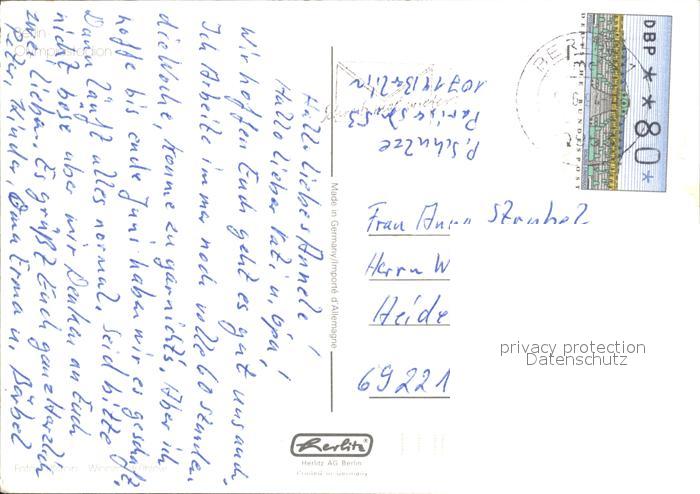 Hallo liebes Annele!
Hallo lieber Vati u. Opa!
Wir hoffen Euch geht es gut uns auch.
Ich Arbeite immer noch volle 60 Stunden
die Woche, komme zu garnichts. Aber ich
hoffe bis ende Juni haben wir es geschaft.
Dann läuft alles normal. Seid bitte
nicht böse aber wir Denken an Euch
Lieben. Es grüßt Euch ganz Herzlich
Peter, Kinder, Oma Erma u. Bärbel
Berlin
Olympiastadion
P. Schulze
Pariser Str 53
10719 Berlin
DBP * * 80 *
DEUTSCHE BUNDESPOST
Frau Anna
Herrn W
Heide
69221
privacy protection
Datenschutz
Made in Germany/Importé d'Allemagne
Herlitz
Herlitz AG Berlin
Printed in Germany